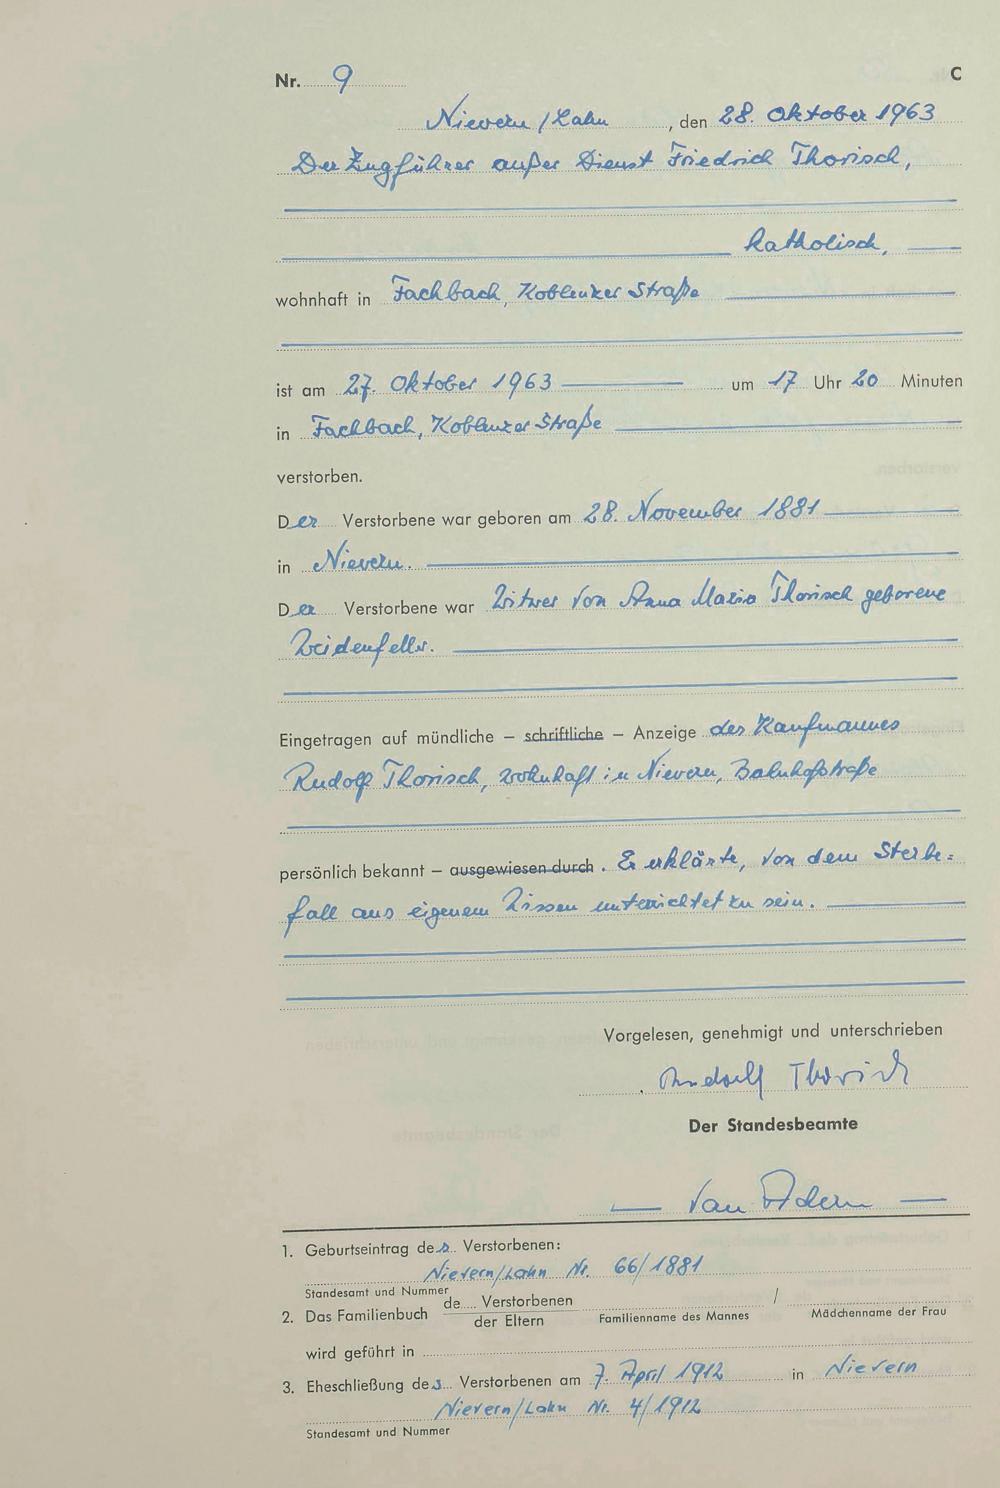 Nr. 9
C
Nievern/Lahn, den 28. Oktober 1963
Der Zugführer außer Dienst Friedrich Thorisch,
katholisch,
wohnhaft in Fachbach, Koblenzer Straße
ist am 27. Oktober 1963 um 17 Uhr 20 Minuten
in Fachbach, Koblenzer Straße
verstorben.
Der Verstorbene war geboren am 28. November 1881
in Nievern.
Der Verstorbene war Witwer von Anna Maria Thorisch geborene
Weidenfeller.
Eingetragen auf mündliche – schriftliche – Anzeige des Kaufmannes
Rudolf Thorisch, wohnhaft in Nievern, Bahnhofstraße
persönlich bekannt – ausgewiesen durch. Er erklärte, von dem Sterbe=
fall aus eigenem Wissen unterrichtet zu sein.
Vorgelesen, genehmigt und unterschrieben
Rudolf Thorisch
Der Standesbeamte
— van —
1. Geburtseintrag des Verstorbenen:
Nievern/Lahn Nr. 66/1881
Standesamt und Nummer
2. Das Familienbuch de Verstorbenen /
der Eltern Familienname des Mannes Mädchenname der Frau
wird geführt in
3. Eheschließung des Verstorbenen am 7. April 1912 in Nievern
Nievern/Lahn Nr. 4/1912
Standesamt und Nummer